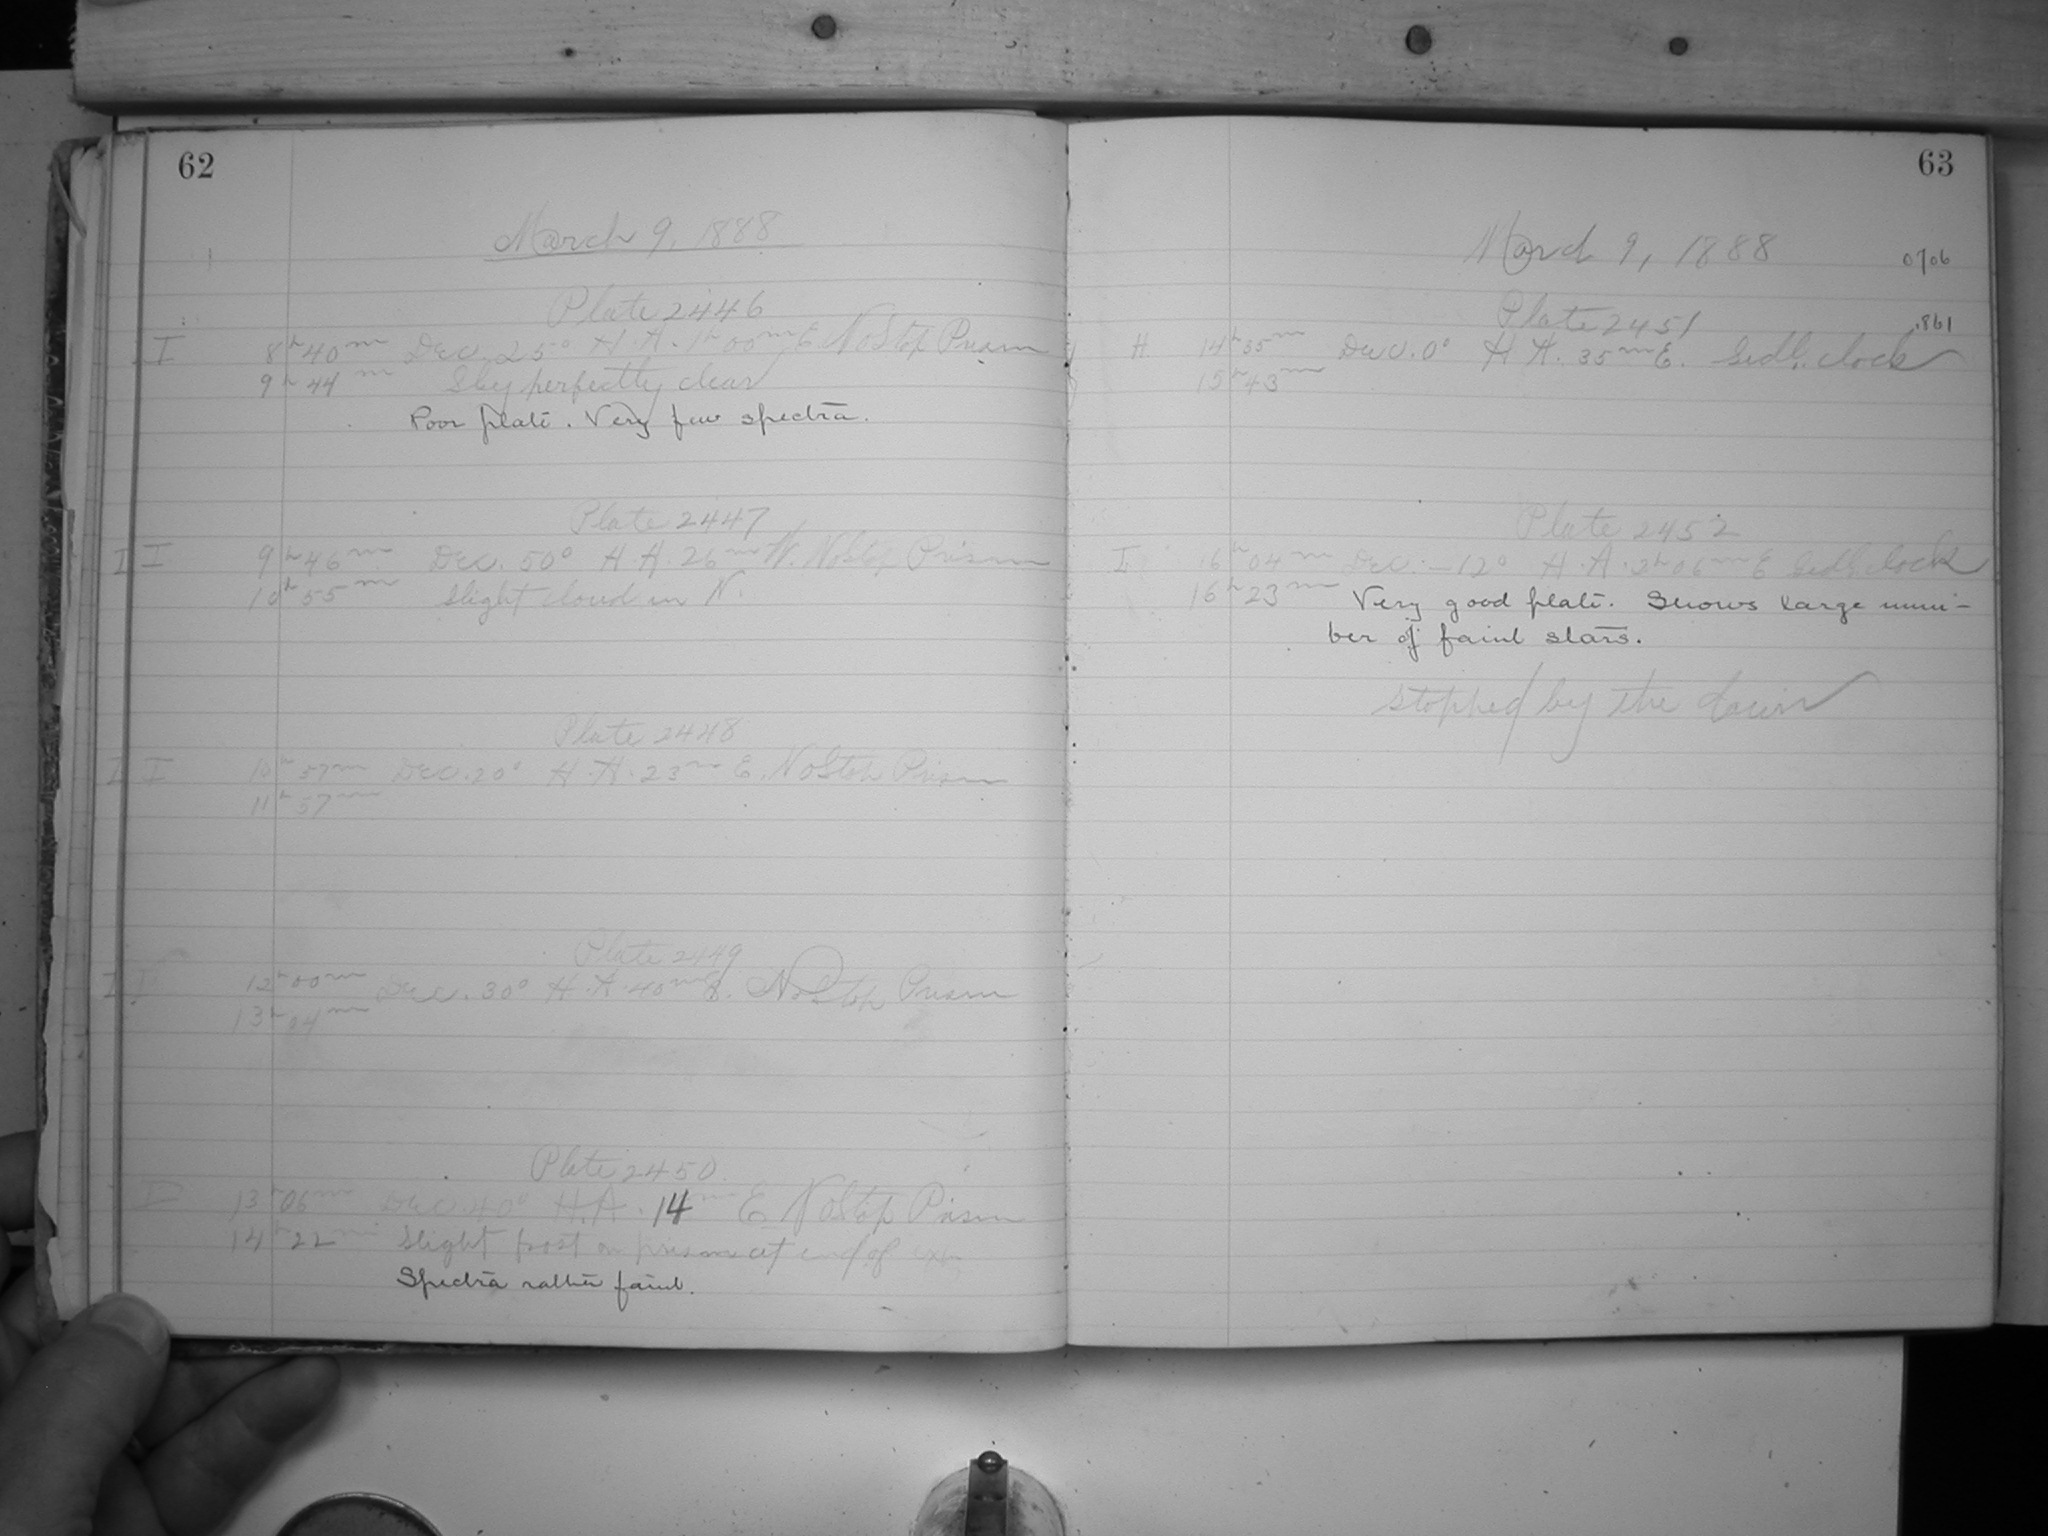 62
March 9, 1888
Plate 2446
I 8h 40m Dec. 25° H.A. 1h 00m E No Stop Prism
9h 44m Sky perfectly clear
Poor plate. Very few spectra.
Plate 2447
I I 9h 46m Dec. 50° H A. 26m W. No Stop Prism
10h 55m Slight cloud in N.
Plate 2448
I I 10h 57m Dec. 20° H.A. 23m E. No Stop Prism
11h 57m
Plate 2449
I I 12h 00m Dec. 30° H.A. 40m E. No Stop Prism
13h 04m
Plate 2450
I 13h 06m Dec. 40° H.A. 14m E No Stop Prism
14h 22m Slight frost on prism at end of ex.
Spectra rather faint.
63
March 9, 1888
0706
Plate 2451
.861
H. 14h 35m Dec. 0° H A. 35m E. Sedl. clock
15h 43m
Plate 2452
I 16h 04m Dec. -12° H.A. 2h 06m E Sedl. clock
16h 23m Very good plate. Shows large num-
ber of faint stars.
stopped by the dawn